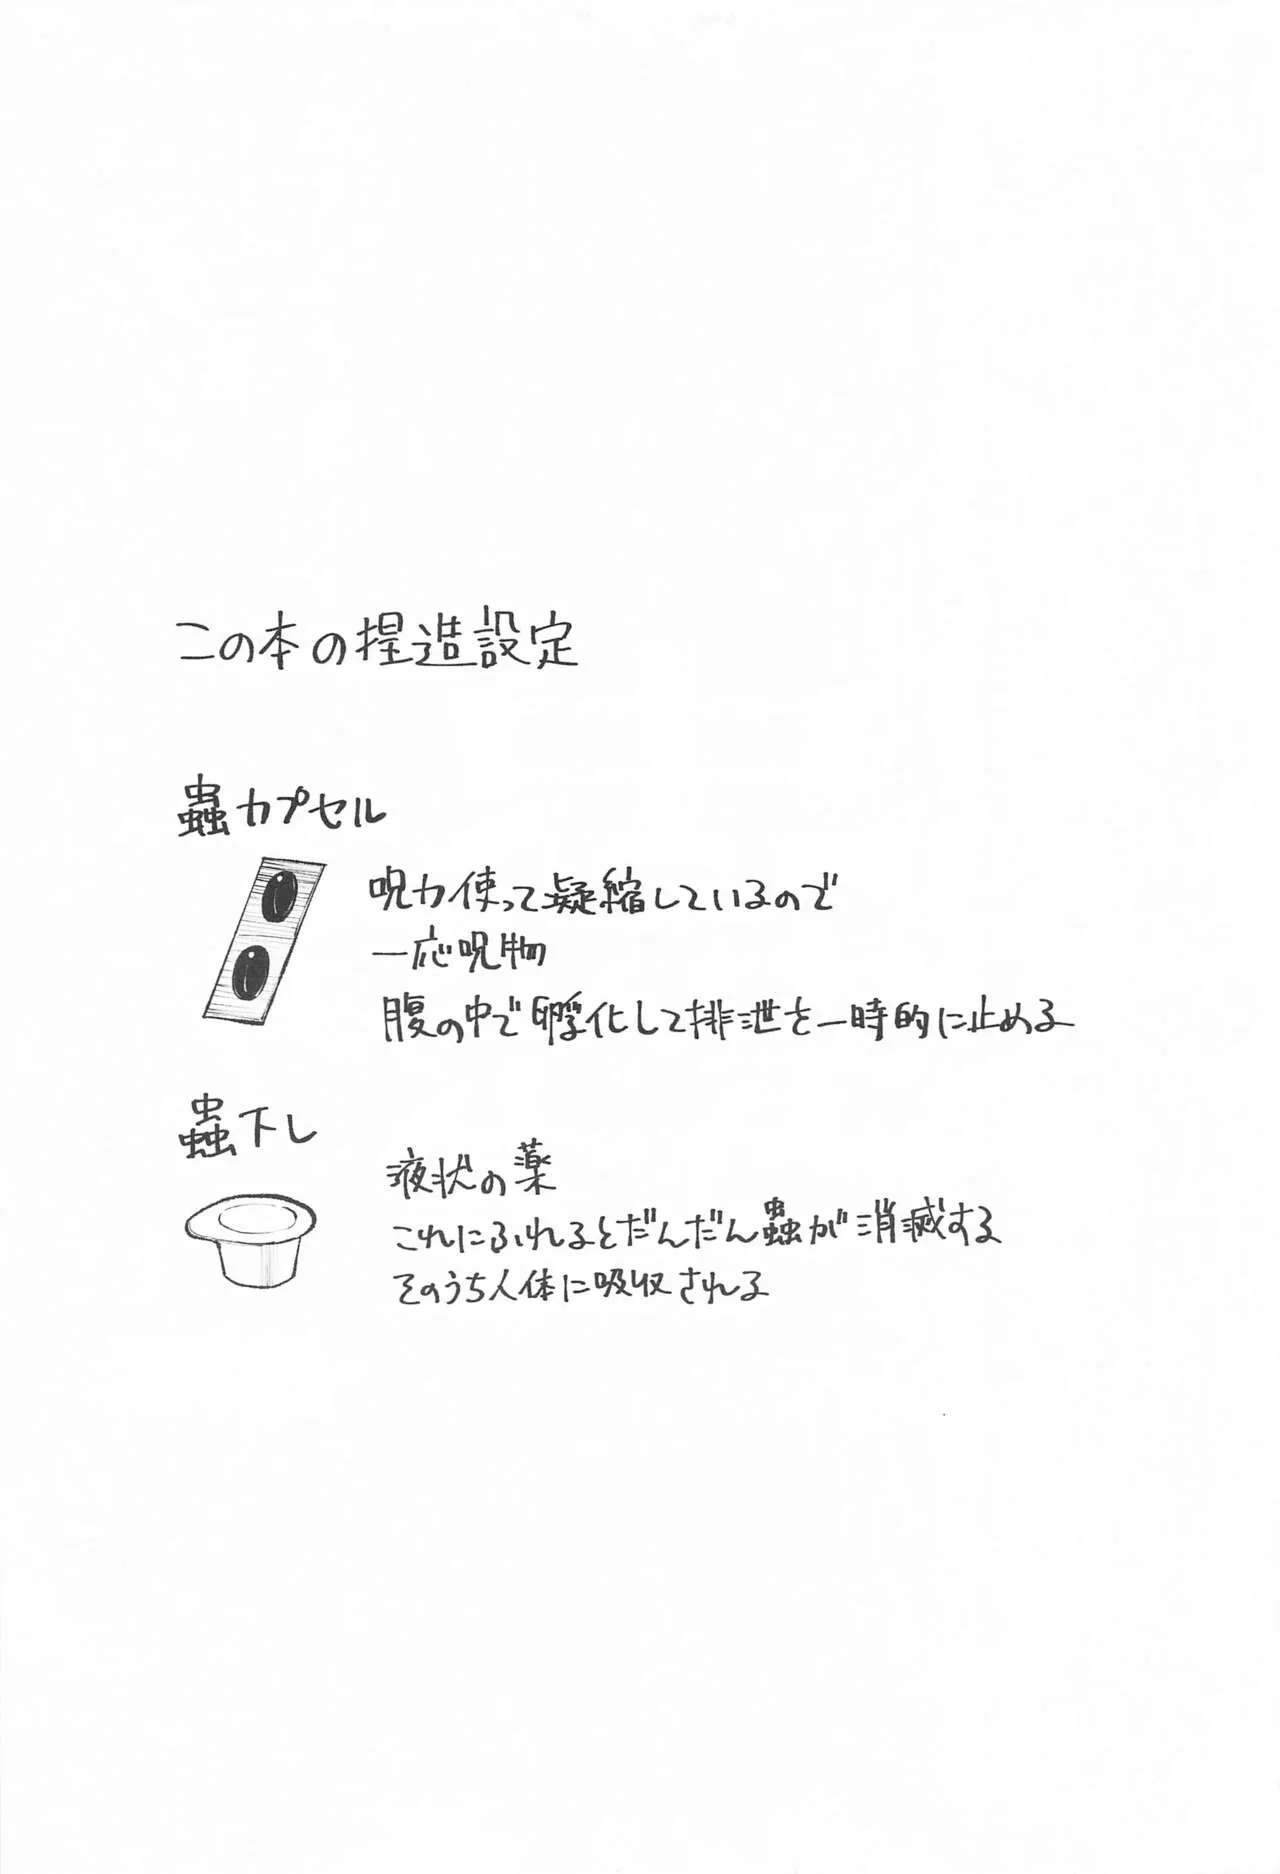 この本の捏造設定
蟲カプセル
呪力使って凝縮しているので
一応呪物
腹の中で孵化して排泄を一時的に止める
蟲下し
液状の薬
これにふれるとだんだん蟲が消滅する
そのうち人体に吸収される